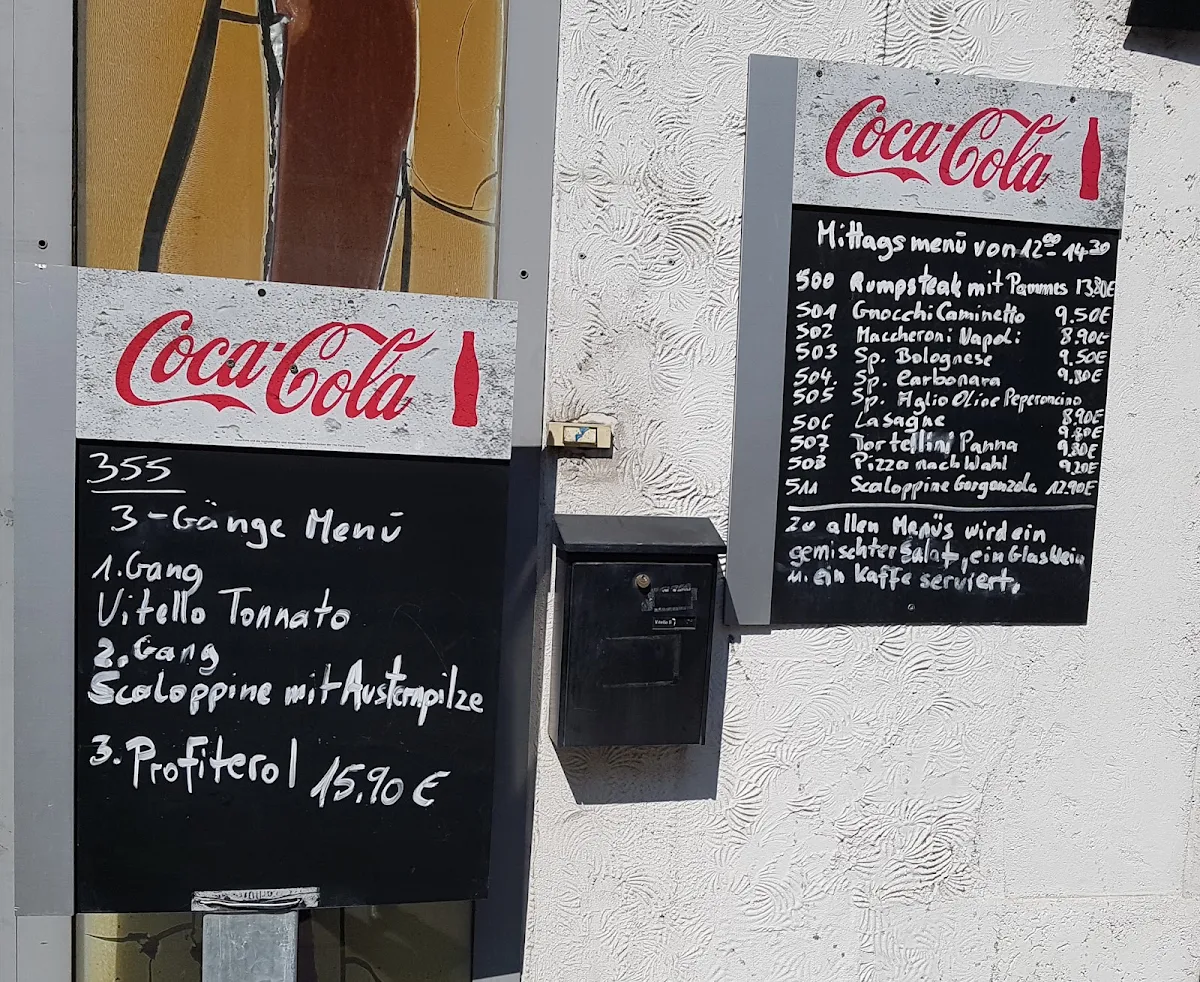 Coca-Cola
355
3-Gänge Menü
1. Gang
Vitello Tonnato
2. Gang
Scaloppine mit Austernpilze
3. Profiterol 15,90 €
Coca-Cola
Mittagsmenü von 12⁰⁰-14³⁰
500 Rumpsteak mit Pommes 13.80€
501 Gnocchi Caminetto 9.50€
502 Maccheroni Napoli 8.90€
503 Sp. Bolognese 9.50€
504. Sp. Carbonara 9.80€
505 Sp. Aglio Olive Peperoncino
8.90€
506 Lasagne 9.80€
507 Tortellini Panna 9.80€
508 Pizza nach Wahl 9.20€
511 Scaloppine Gorgonzola 12.90€
Zu allen Menüs wird ein
gemischter Salat, ein Glas Wein
u. ein Kaffe serviert.